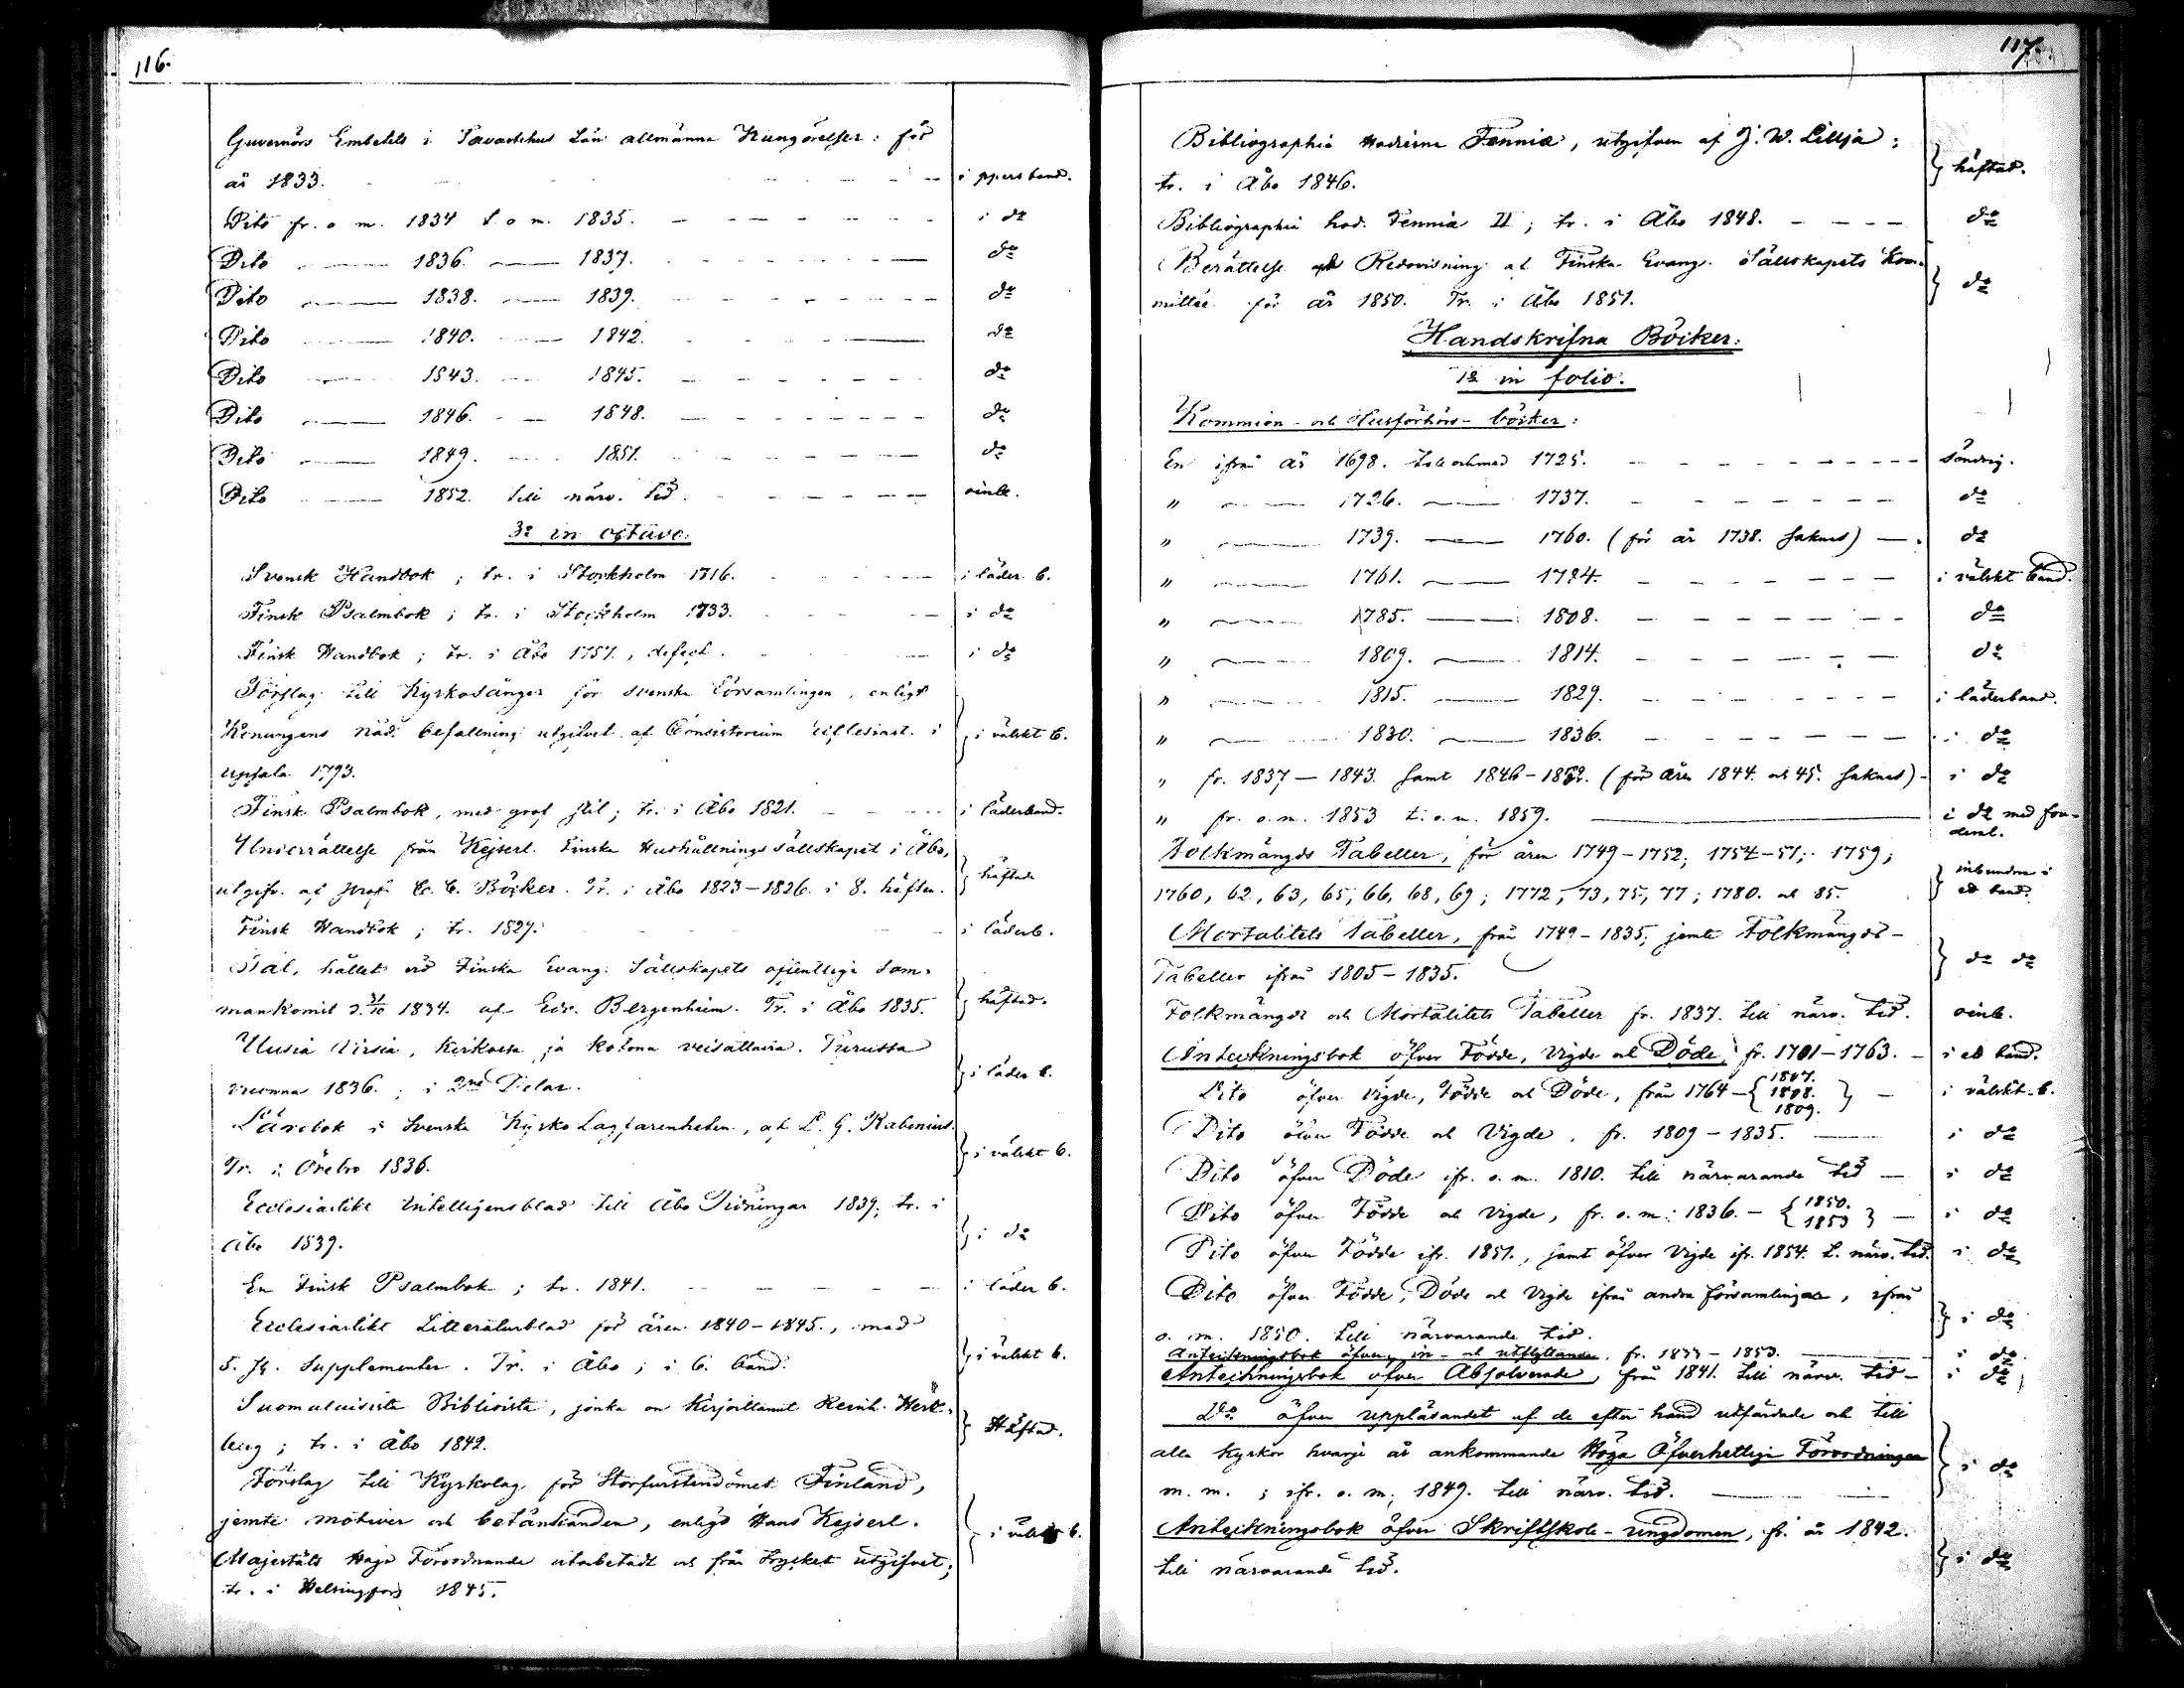 116.
Guvernörs Embetets i Tavastehus Län allmänna Kungörelser: för
år 1833. - - - - - - i ppers band.
Dito fr. o m. 1834 t. o m. 1835. - - - - - - i do
Dito 1836. 1837. - - - - - - do
Dito 1838. 1839. - - - - - - do
Dito 1840. 1842. - - - do
Dito 1843. 1845. - - - - - - do
Dito 1846. 1848. - - - - - - do
Dito 1849. 1851. - - - - - - do
Dito 1852. till närv. tid. - - - - - oinb.
3o in octavo.
Svensk Handbok; tr. i Stockholm 1716. - - - i läder b.
Finsk Psalmbok; tr. i Stockholm 1733. - - - i do
Finsk Handbok; tr. i Åbo 1757., defect. - - - i do
Förslag till Kyrkosånger för svenska Församlingen, enligt
Konungens nåd. befallning utgifvet af Consistorium Ecclesiast. i } i välskt b.
Upsala 1793.
Finsk Psalmbok, med grof stil; tr. i Åbo 1821. - - - i läderband.
Underrättelse från Kejserl. Finska Hushållnings sällskapet i Åbo,
utgifv. af Prof. C. C. Böcker. Tr. i Åbo 1823-1826. i 8. häften. } häftade
Finsk Handbok; tr. 1827. - - i läderb.
Tal, hållet vid Finska Evang. Sällskapets offentliga Sam-
mankomst d. 31/10 1834. af Edv. Bergenheim. Tr. i Åbo 1835. } häftad.
Uusia Virsiä, Kirkossa ja kotona veisattavia. Turussa
vuonna 1836.; i 2ne Delar. } i läder b.
Lärobok i Svenska Kyrko Lagfarenheten, af L. G. Rabenius.
Tr. i Örebro 1836. } i välskt b.
Ecclesiastikt Intelligensblad till Åbo Tidningar 1839; tr. i
Åbo 1839. } i do
En Finsk Psalmbok; tr. 1841. - - - - - i läder b.
Ecclesiastikt Litteraturblad för åren 1840-1845., med
Supplementer. Tr. i Åbo; i 6. band. } i välskt b.
Suomalaisista Biblioista, jonka on kirjoittanut Reinh. Hert-
berg; tr. i Åbo 1842. } Häftad.
Förslag till Kyrkolag för Storfurstendömet Finland,
jemte motiver och betänkanden, enligt Hans Kejserl. } i välskt b.
Majestäts Höga Förordnande utarbetadt och från trycket utgifvet;
tr. i Helsingfors 1845.
117.
Bibliographia Hodierna Fennia, utgifven af J. W. Lillja;
tr. i Åbo 1846. } häftad.
Bibliographia hod. Fennia II; tr. i Åbo 1848. - - - - do
Berättelse och Redovisning af Finska Evang. Sällskapets Kom-
mitté för år 1850. Tr. i Åbo 1851. } do
Handskrifna Böcker:
1o in folio.
Kommion- och Husförhörs-böcker:
En ifrån år 1698. till och med 1725. - - - - - - söndrig.
" 1726. 1737. - - - - - - do
" 1739. 1760. (för år 1738. saknas) - do
" 1761. 1784. - - - - - - i välskt band.
" 1785. 1808. - - - - - - do
" 1809. 1814. - - - - - - do
" 1815. 1829. - - - - - - i läderband.
" 1830. 1836. - - - - - - i do
" fr. 1837-1843. samt 1846-1852. (för åren 1844. och 45. saknas) - i do
" fr. o. m. 1853 t. o. m. 1859. i do med fou-
deral.
Folkmängds Tabeller, för åren 1749-1752; 1754-57; 1759;
1760, 62, 63, 65, 66, 68, 69; 1772, 73, 75, 77; 1780. och 85. } inbundna i
ett band.
Mortalitets Tabeller, från 1749-1835; jemte Folkmängds-
Tabeller ifrån 1805-1835. } do do
Folkmängds och Mortalitets Tabeller fr. 1837. till närv. tid. oinb.
Anteckningsbok öfver Födde, Vigde och Döde, fr. 1701-1763. - i ett band.
Dito öfver Vigde, Födde och Döde, från 1764- { 1807. 1808. 1809. } - i välskt b.
Dito öfver Födde och Vigde, fr. 1809-1835. i do
Dito öfver Döde ifr. o. m. 1810. till närvarande tid - i do
Dito öfver Födde och Vigde, fr. o. m. 1836. - { 1850. 1853 } - i do
Dito öfver Födde ifr. 1851., samt öfver Vigde ifr. 1854. t. närv. tid. i do
Dito öfver Födde, Döde och Vigde ifrån andra församlingar, ifrån
o. m. 1850. till närvarande tid. } i do
Anteckningsbok öfver, in- och utflyttande, fr. 1833-1853. i do
Anteckningsbok öfver Absolverade, från 1841. till närv. tid - i do
Do öfver uppläsandet af de efter hand utfärdade och till
alla kyrkor hvarje år ankommande Höga Öfverhetliga Förordningar } i do
m. m.; ifr. o. m. 1849. till närv. tid.
Anteckningsbok öfver Skriftskole-ungdomen, fr. år 1842.
till närvarande tid. } i do